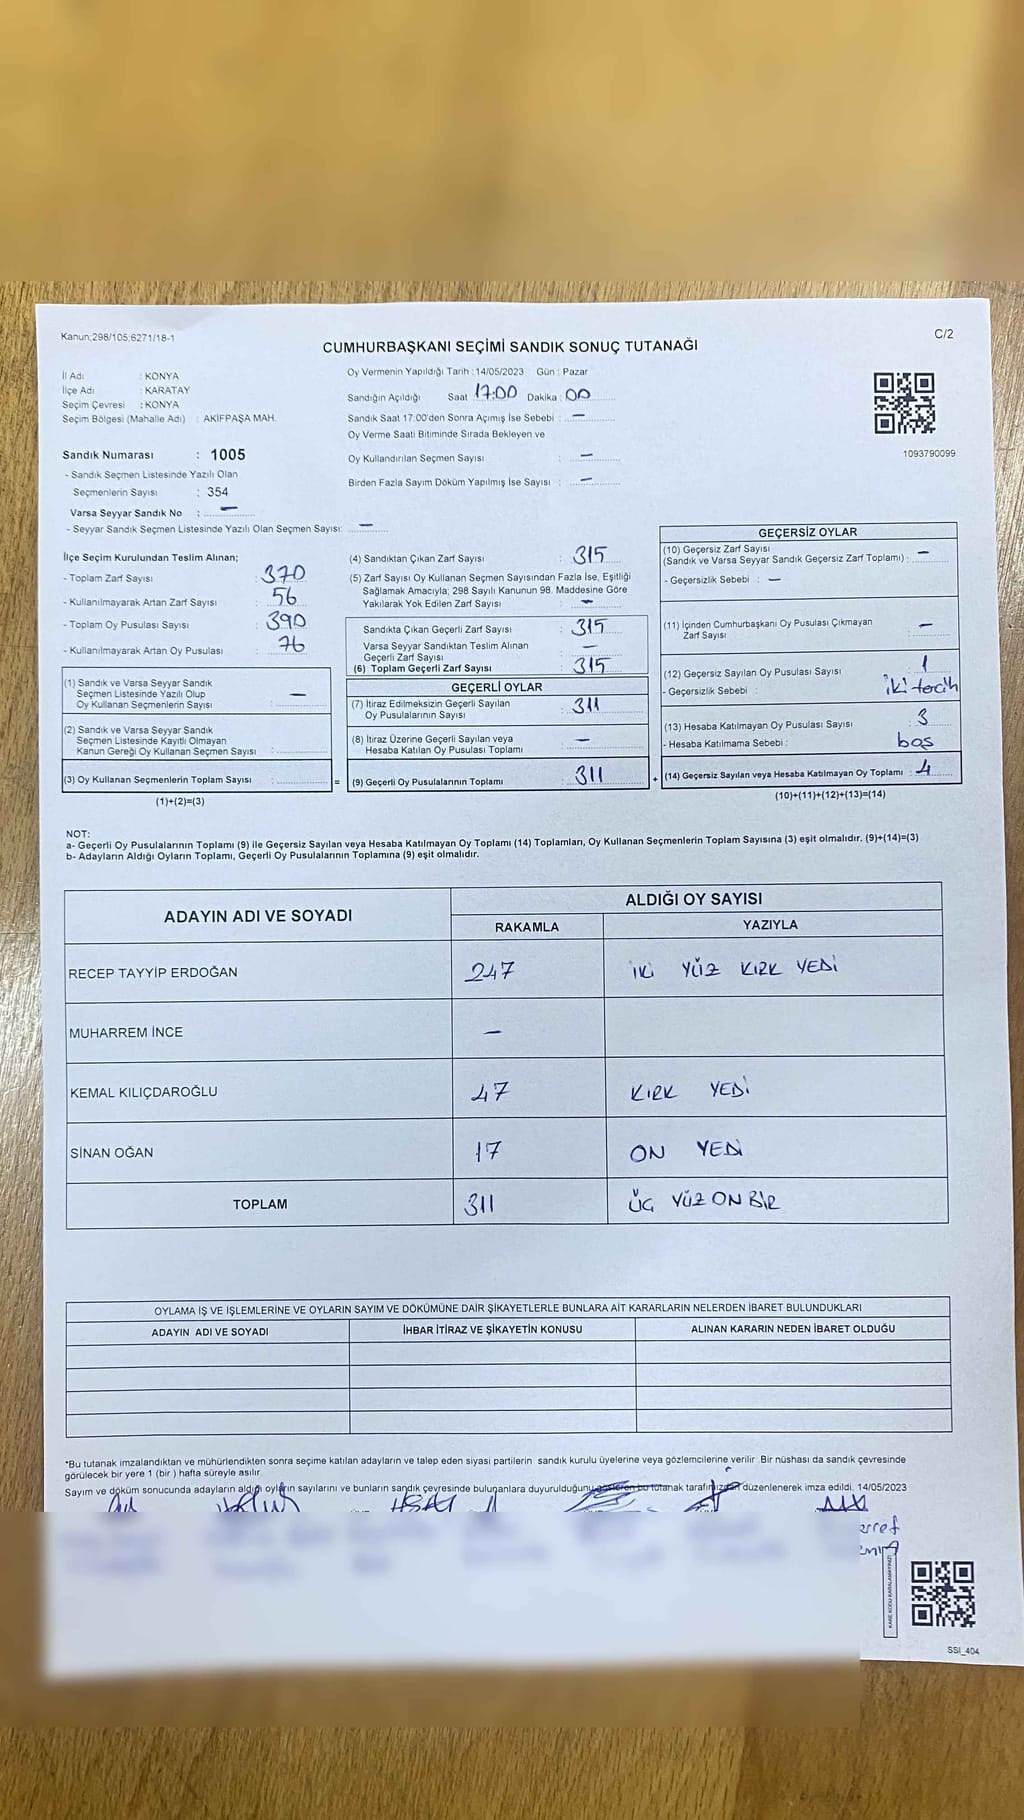 Kanun;298/105;6271/18-1
C/2
CUMHURBAŞKANI SEÇİMİ SANDIK SONUÇ TUTANAĞI
İl Adı : KONYA
İlçe Adı : KARATAY
Seçim Çevresi : KONYA
Seçim Bölgesi (Mahalle Adı) : AKİFPAŞA MAH.
Oy Vermenin Yapıldığı Tarih : 14/05/2023 Gün : Pazar
Sandığın Açıldığı Saat : 17:00 Dakika : 00
Sandık Saat 17:00'den Sonra Açımış İse Sebebi : —
Oy Verme Saati Bitiminde Sırada Bekleyen ve
Oy Kullandırılan Seçmen Sayısı : —
Birden Fazla Sayım Döküm Yapılmış İse Sayısı : —
1093790099
Sandık Numarası : 1005
- Sandık Seçmen Listesinde Yazılı Olan
Seçmenlerin Sayısı : 354
Varsa Seyyar Sandık No : —
- Seyyar Sandık Seçmen Listesinde Yazılı Olan Seçmen Sayısı: —
İlçe Seçim Kurulundan Teslim Alınan;
- Toplam Zarf Sayısı : 370
- Kullanılmayarak Artan Zarf Sayısı : 56
- Toplam Oy Pusulası Sayısı : 390
- Kullanılmayarak Artan Oy Pusulası : 76
(1) Sandık ve Varsa Seyyar Sandık
Seçmen Listesinde Yazılı Olup
Oy Kullanan Seçmenlerin Sayısı : —
(2) Sandık ve Varsa Seyyar Sandık
Seçmen Listesinde Kayıtlı Olmayan
Kanun Gereği Oy Kullanan Seçmen Sayısı :
(3) Oy Kullanan Seçmenlerin Toplam Sayısı :
(1)+(2)=(3)
(4) Sandıktan Çıkan Zarf Sayısı : 315
(5) Zarf Sayısı Oy Kullanan Seçmen Sayısından Fazla İse, Eşitliği
Sağlamak Amacıyla; 298 Sayılı Kanunun 98. Maddesine Göre
Yakılarak Yok Edilen Zarf Sayısı : —
Sandıkta Çıkan Geçerli Zarf Sayısı : 315
Varsa Seyyar Sandıktan Teslim Alınan
Geçerli Zarf Sayısı : —
(6) Toplam Geçerli Zarf Sayısı : 315
GEÇERLİ OYLAR
(7) İtiraz Edilmeksizin Geçerli Sayılan
Oy Pusulalarının Sayısı : 311
(8) İtiraz Üzerine Geçerli Sayılan veya
Hesaba Katılan Oy Pusulası Toplamı : —
= (9) Geçerli Oy Pusulalarının Toplamı : 311 +
GEÇERSİZ OYLAR
(10) Geçersiz Zarf Sayısı
(Sandık ve Varsa Seyyar Sandık Geçersiz Zarf Toplamı) : —
- Geçersizlik Sebebi : —
(11) İçinden Cumhurbaşkanı Oy Pusulası Çıkmayan
Zarf Sayısı : —
(12) Geçersiz Sayılan Oy Pusulası Sayısı : 1
- Geçersizlik Sebebi : iki tercih
(13) Hesaba Katılmayan Oy Pusulası Sayısı : 3
- Hesaba Katılmama Sebebi : boş
(14) Geçersiz Sayılan veya Hesaba Katılmayan Oy Toplamı : 4
(10)+(11)+(12)+(13)=(14)
NOT:
a- Geçerli Oy Pusulalarının Toplamı (9) ile Geçersiz Sayılan veya Hesaba Katılmayan Oy Toplamı (14) Toplamları, Oy Kullanan Seçmenlerin Toplam Sayısına (3) eşit olmalıdır. (9)+(14)=(3)
b- Adayların Aldığı Oyların Toplamı, Geçerli Oy Pusulalarının Toplamına (9) eşit olmalıdır.
ADAYIN ADI VE SOYADI
ALDIĞI OY SAYISI
RAKAMLA YAZIYLA
RECEP TAYYİP ERDOĞAN 247 İKİ YÜZ KIRK YEDİ
MUHARREM İNCE —
KEMAL KILIÇDAROĞLU 47 KIRK YEDİ
SİNAN OĞAN 17 ON YEDİ
TOPLAM 311 ÜÇ YÜZ ON BİR
OYLAMA İŞ VE İŞLEMLERİNE VE OYLARIN SAYIM VE DÖKÜMÜNE DAİR ŞİKAYETLERLE BUNLARA AİT KARARLARIN NELERDEN İBARET BULUNDUKLARI
ADAYIN ADI VE SOYADI İHBAR İTİRAZ VE ŞİKAYETİN KONUSU ALINAN KARARIN NEDEN İBARET OLDUĞU
*Bu tutanak imzalandıktan ve mühürlendikten sonra seçime katılan adayların ve talep eden siyasi partilerin sandık kurulu üyelerine veya gözlemcilerine verilir. Bir nüshası da sandık çevresinde
görülecek bir yere 1 (bir ) hafta süreyle asılır.
Sayım ve döküm sonucunda adayların aldığı oyların sayılarını ve bunların sandık çevresinde bulunanlara duyurulduğunu gösteren bu tutanak tarafımızdan düzenlenerek imza edildi. 14/05/2023
KARE KODU KARALAMAYINIZ!
SSI_404